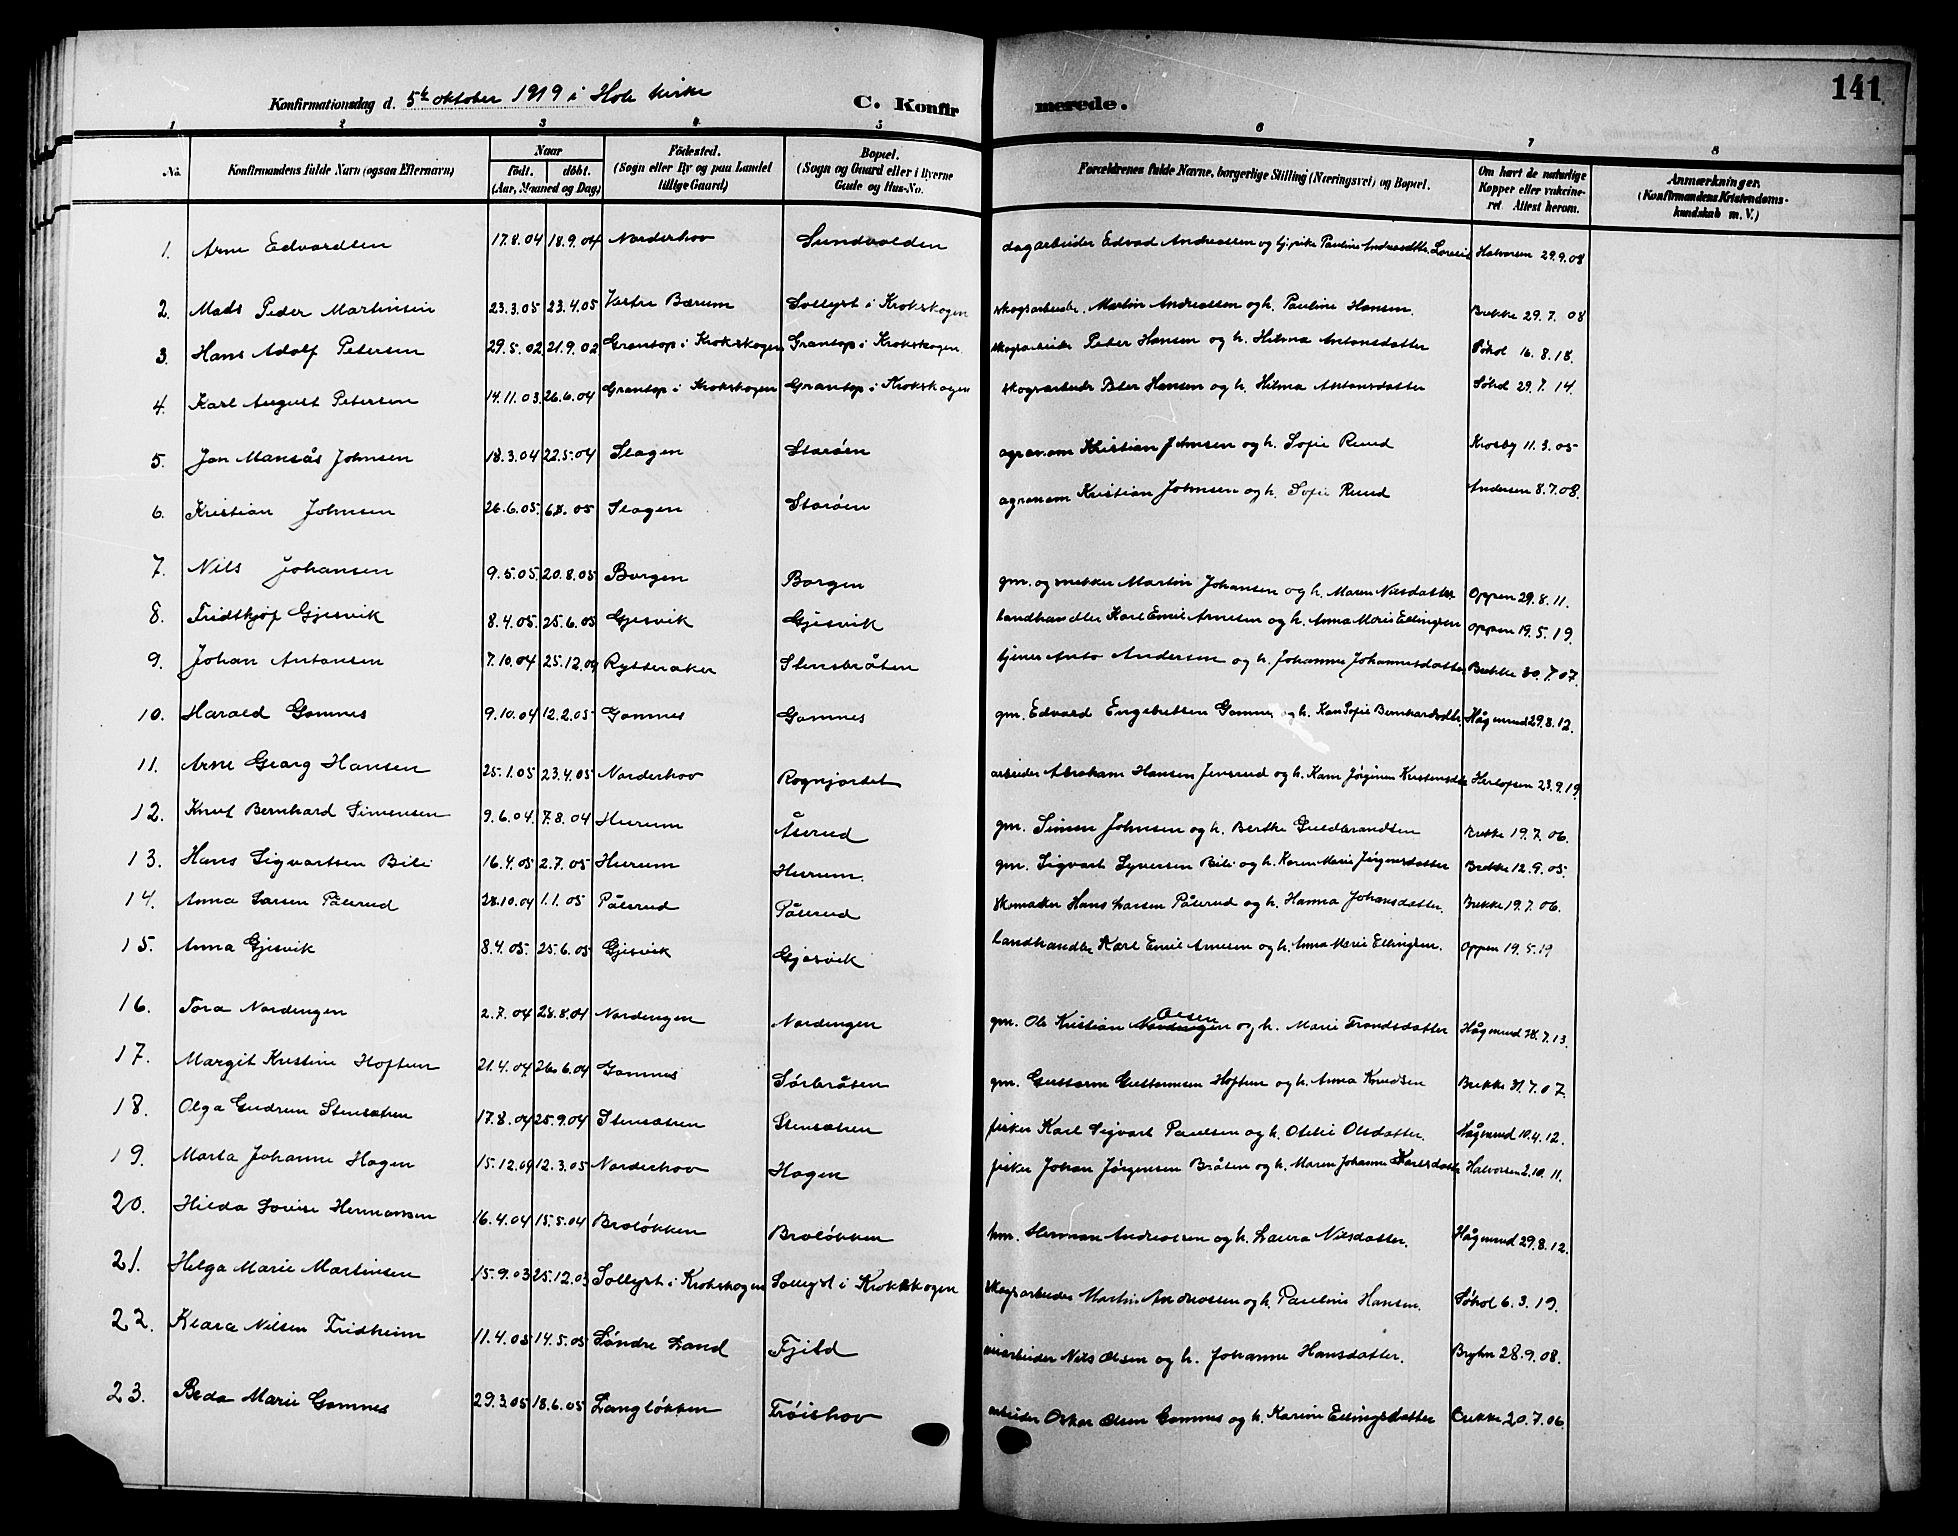 141
Konfirmationsdag d. 5te oktober 1919 i Hole kirke C. Konfirmerede.
1 2 3 4 5 6 7 8
No. Konfirmandens fulde Navn (ogsaa Efternavn) Naar födt. döbt. (Aar, Maaned og Dag) Födested. (Sogn eller By og paa Landet tillige Gaard) Bopæl. (Sogn og Gaard eller i Byerne Gade og Hus-No. Forældrenes fulde Navne, borgerlige Stilling (Næringsvei) og Bopæl. Om havt de naturlige Kopper eller vakcineret. Attest herom. Anmærkninger. (Konfirmandens Kristendomskundskab m. V.)
1. Arne Edvardsen 17.8.04 18.9.04 Norderhov Sundvolden dagarbeider Edvad Andreassen og Pauline Andreasdtr. Halvorsen 29.9.08
2. Mads Peder Martinsen 23.3.05 23.4.05 Vestre Bærum Sollyst i Krokskogen skogsarbeider Martin Andreassen og h. Pauline Hansen. Brekke 29.7.08
3. Hans Adolf Petersen 29.5.02 21.9.02 Grantop i Krokskogen Grantop i Krokskogen skogsarbeider Peter Hansen og h. Hilma Antonsdatter Søhol 16.8.18.
4. Karl August Petersen 14.11.03. 26.6.04 Grantop i Krokskogen Grantop i Krokskogen skogsarbeider Peter Hansen og h. Hilma Antonsdatter Søhol 29.7.14.
5. Jon Mansås Johnsen 18.3.04 22.5.04 Slagen Storöen agronom Kristian Johnsen og h. Sofie Ruud Krosby 11.3.05
6. Kristian Johnsen 26.6.05. 6.8.05 Slagen Storöen agronom Kristian Johnsen og h. Sofie Ruud Andersen 8.7.08.
7. Nils Johansen 9.5.05. 20.8.05 Borgen Borgen gm. og snekker Martin Johansen og h. Maren Nilsdatter Oppen 29.8.11.
8. Fridthjof Gjesvik 8.4.05. 25.6.05 Gjesvik Gjesvik landhandler Karl Emil Arnesen og h. Anna Marie Ellingsen Oppen 19.5.19.
9. Johan Antonsen 7.10.04 25.12.04 Rytteraker Stensbråten tjener Anto Andersen og h. Johanne Johannesdatter Brekke 30.7.07.
10. Harald Gomnes 9.10.04 12.2.05 Gomnes Gomnes gm. Edvard Engebretsen Gomnes og h. Karen Sofie Bernhardsdtr. Hågnrud 29.8.12.
11. Arne Georg Hansen 25.1.05 23.4.05 Norderhov Rognjordet arbeider Abraham Hansen Jensrud og h. Karen Jørginen Kristensdtr. Herlofsen 23.9.19.
12. Knut Bernhard Simensen 9.6.04 7.8.04 Hurum Åsrud gm. Simen Johnsen og h. Berthe Guldbrandsen Brekke 19.7.06.
13. Hans Sigvartsen Bili 16.4.05 2.7.05 Hurum Hurum. gm. Sigvart Syversen Bili og h. Karen Marie Jørgensdatter Brekke 12.9.05.
14. Anna Larsen Pålsrud 28.10.04 1.1.05 Pålsrud Pålsrud Skomaker Hans Larsen Pålsrud og h. Hanna Johansdatter. Brekke 19.7.06.
15. Anna Gjesvik 8.4.05. 25.6.05 Gjesvik Gjesvik landhandler Karl Emil Arnesen og h. Anna Marie Ellingsen. Oppen 19.5.19
16. Tora Nordengen 2.7.04 28.8.04 Nordengen Nordengen gm. Ole Kristian Nordengen Olsen og h. Marie Frandsdatter Hågnrud 18.7.13.
17. Margit Kristine Hoftun 21.4.04 26.6.04 Gomnes Sørbråten gm. Guttorm Guttormsen Hoftun og h. Anna Knudsen Brekke 31.7.07.
18. Olga Gudrun Stensætren 17.8.04 25.9.04 Stensætren Stensætren fisker Karl Sigvart Paulsen og h. Otelie Olsdatter. Hågnrud 10.4.12.
19. Marta Johanne Hagen 15.12.04 12.3.05 Norderhov Hagen fisker Johan Jørgensen Bråten og h. Maren Johanne Karlsdatter Halvorsen 2.10.11.
20. Hilda Lovise Hermansen 16.4.04 15.5.04 Broløkken Broløkken hm. Herman Andreassen og h. Laura Nilsdatter. Hågnrud 29.8.12.
21. Helga Marie Martinsen 15.9.03 25.12.03 Sollyst i Krokskogen Sollyst i Krokskogen skogsarbeider Martin Andreassen og h. Pauline Hansen. Søhol 6.3.19.
22. Klara Nilsen Fridheim 11.4.05 14.5.05 Søndre Land Fjeld veiarbeider Nils Olsen og h. Johanne Hansdatter. Bryhn 28.9.08.
23. Beda Marie Gomnes 29.3.05 18.6.05 Langløkken Frøishov arbeider Oskar Olsen Gomnes og h. Karine Ellingsdatter Brekke 20.7.06